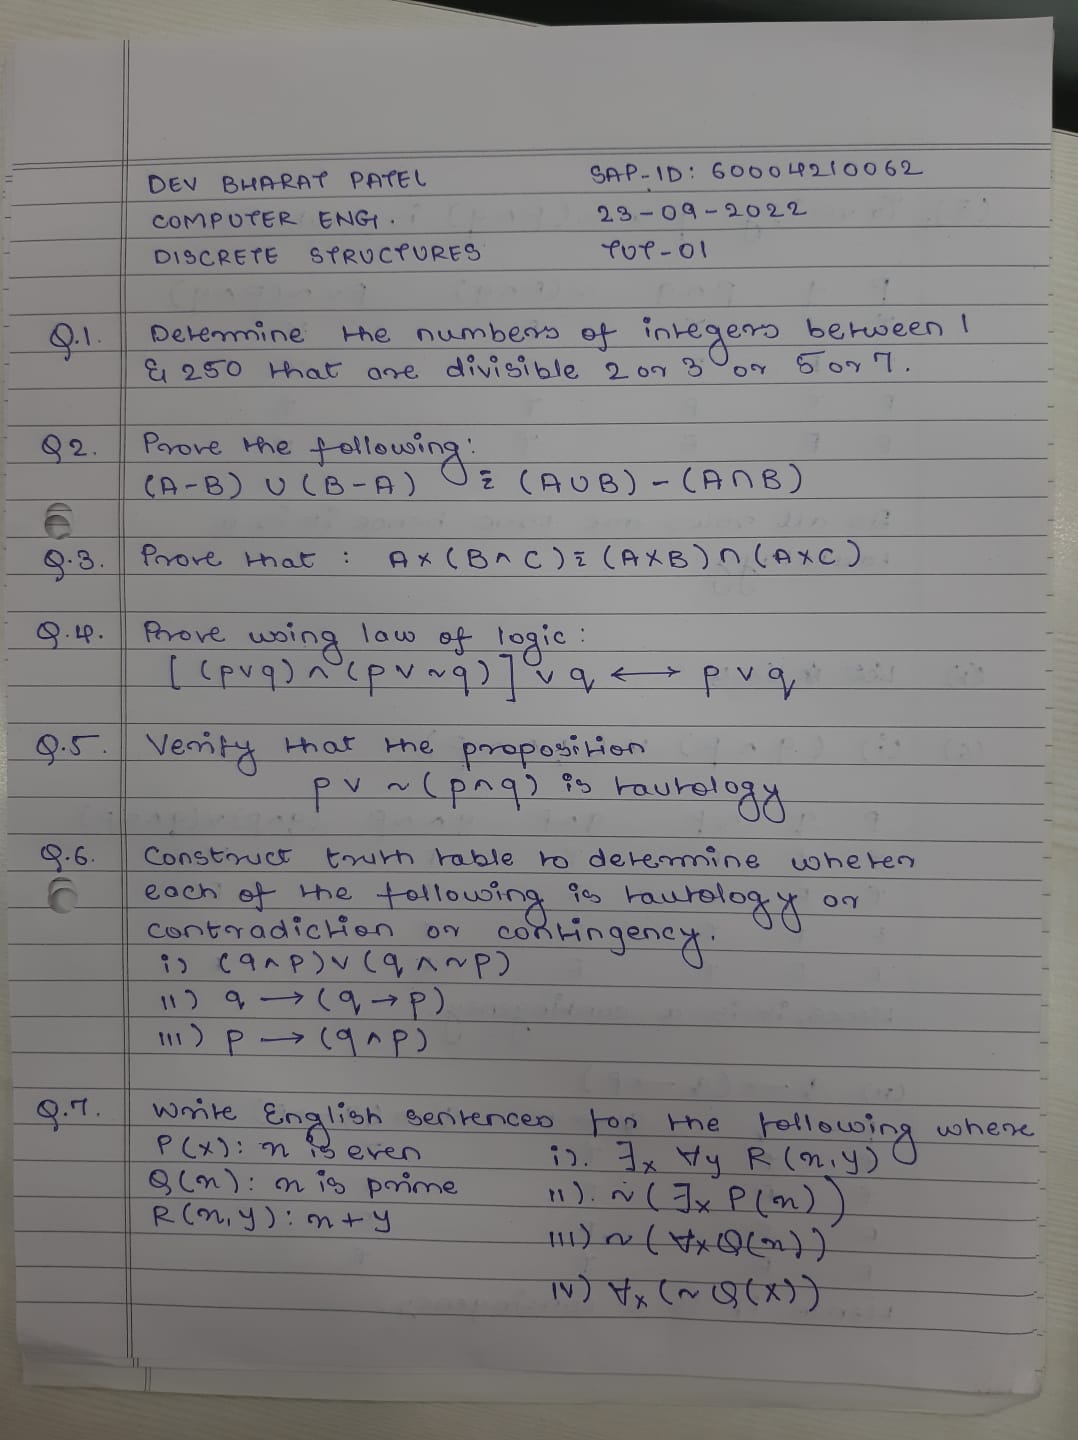 DEV BHARAT PATEL SAP-ID: 60004210062
COMPUTER ENGI. 23-09-2022
DISCRETE STRUCTURES TUT-01
Q.1. Determine the numbers of integers between 1
& 250 that are divisible 2 or 3 or 5 or 7.
Q2. Prove the following:
(A-B) ∪ (B-A) ≡ (A∪B) - (A∩B)
Q.3. Prove that : A × (B ∩ C) ≡ (A×B) ∩ (A×C)
Q.4. Prove using law of logic:
[(p∨q) ∧ (p ∨ ~q)] ∨ q ⟷ p ∨ q
Q.5. Verify that the proposition
p ∨ ~(p∧q) is tautology
Q.6. Construct truth table to determine wheter
each of the following is tautology or
contradiction or contingency.
i) (q∧p)∨(q∧~p)
ii) q → (q→p)
iii) p → (q∧p)
Q.7. Write English sentences for the following where
P(x): x is even i). ∃x ∀y R(x,y)
Q(x): x is prime ii). ~(∃x P(x))
R(x,y): x+y iii) ~(∀x Q(x))
iv) ∀x (~Q(x))